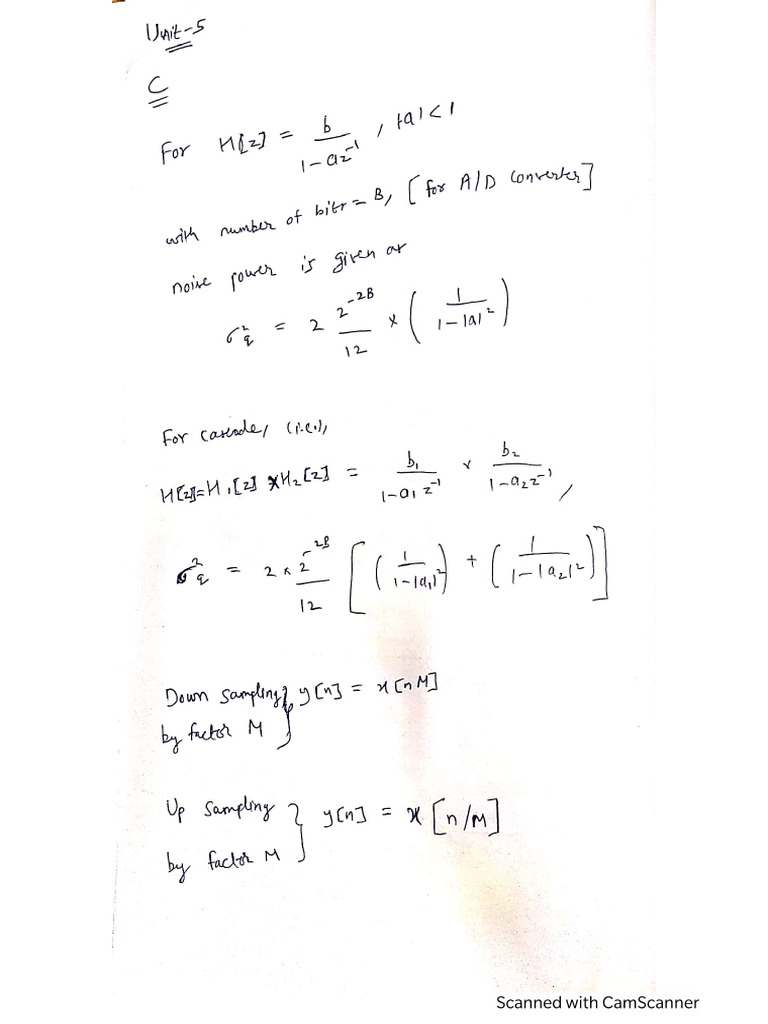 Unit-5
C
For H[z] = b / (1-az⁻¹), |a|<1
with number of bits = B, [for A/D Converter]
noise power is given as
σ²q = 2 2⁻²ᴮ/12 × (1/(1-|a|²))
For cascade, (i.e.),
H[z]=H₁[z] ×H₂[z] = b₁/(1-a₁z⁻¹) × b₂/(1-a₂z⁻¹),
σ²q = 2×2⁻²ᴮ/12 [(1/(1-|a₁|²)) + (1/(1-|a₂|²))]
Down sampling } y[n] = x[nM]
by factor M
Up sampling } y[n] = x[n/M]
by factor M
Scanned with CamScanner